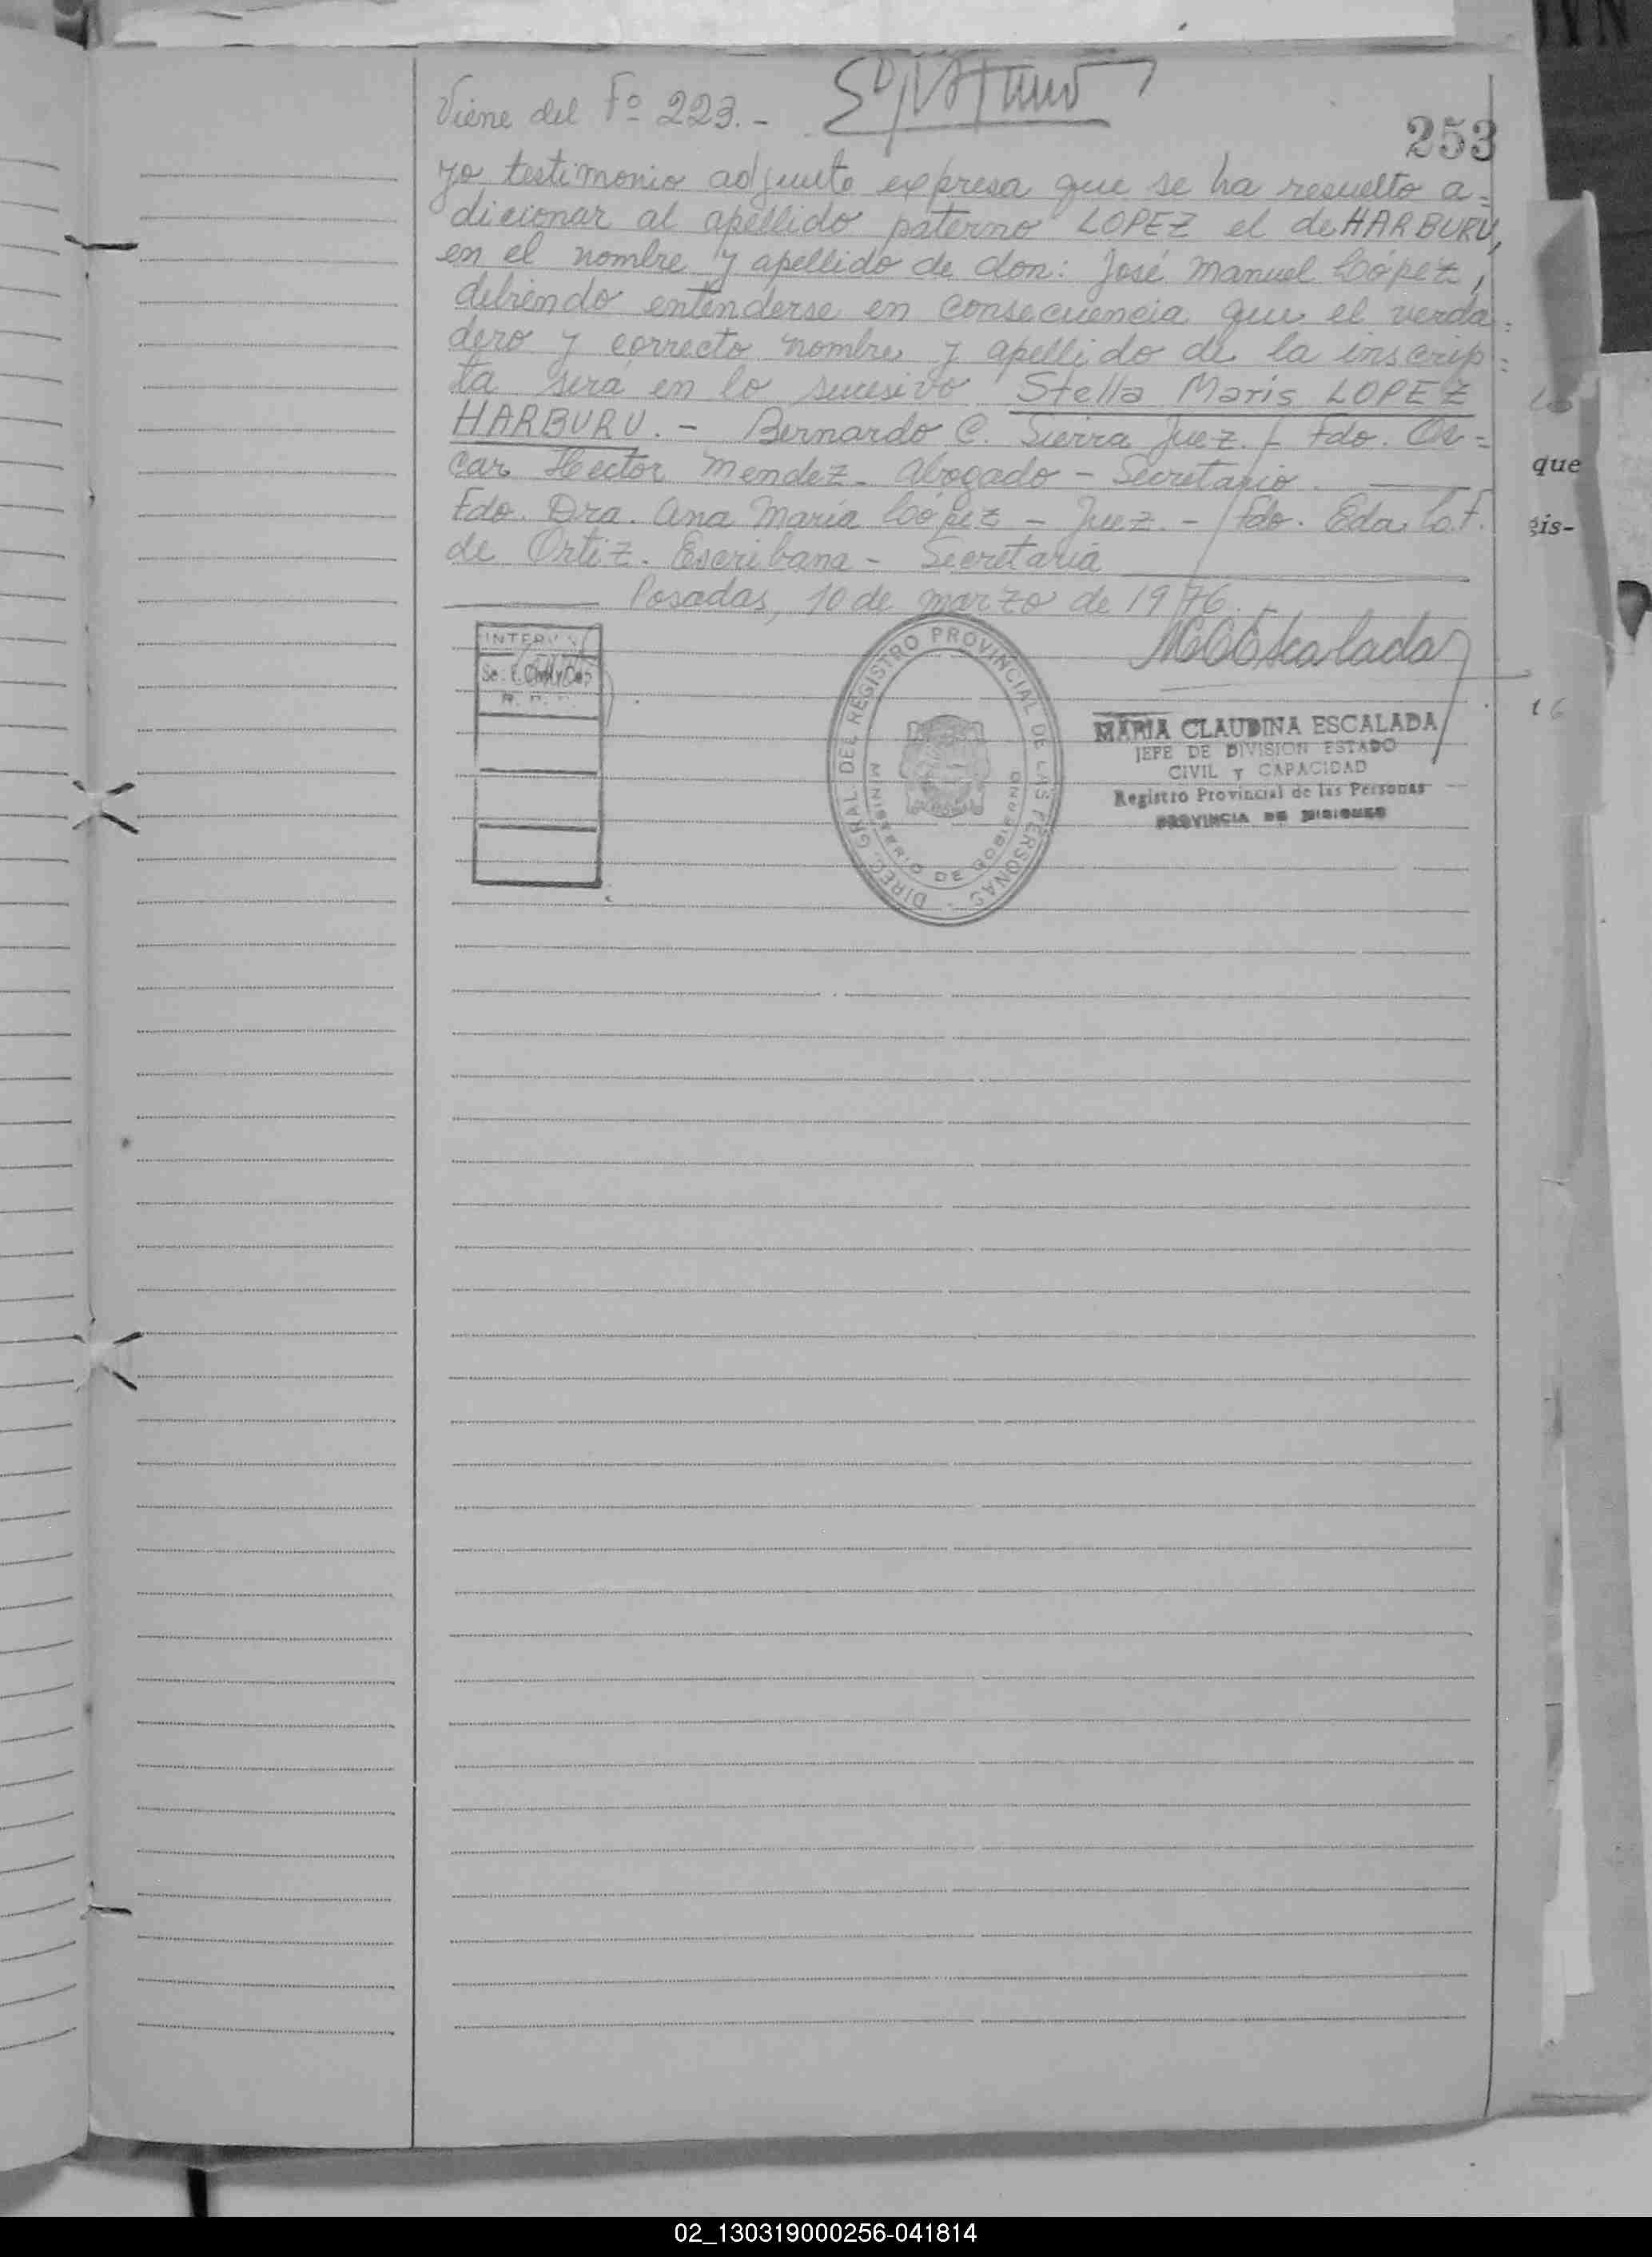 Viene del Fº 223.-
253
yo testimonio adjunto expresa que se ha resuelto a=
dicionar al apellido paterno LOPEZ el de HARBURU,
en el nombre y apellido de don: José Manuel López,
debiendo entenderse en consecuencia que el verda=
dero y correcto nombre y apellido de la inscrip=
ta será en lo sucesivo Stella Maris LOPEZ
HARBURU.- Bernardo C. Sierra Juez.- Fdo. Os=
car Hector Mendez. Abogado - Secretario.
Fdo. Dra. Ana María López - Juez.- Fdo. Eda L. F.
de Ortiz. Escribana - Secretaria
Posadas, 10 de marzo de 1976.
MCEscalada
INTERV
DIREC. GRAL. DEL REGISTRO PROVINCIAL DE LAS PERSONAS -
MINISTERIO DE GOBIERNO
MARIA CLAUDINA ESCALADA
JEFE DE DIVISION ESTADO
CIVIL Y CAPACIDAD
Registro Provincial de las Personas
PROVINCIA DE MISIONES
que
gis-
02_130319000256-041814